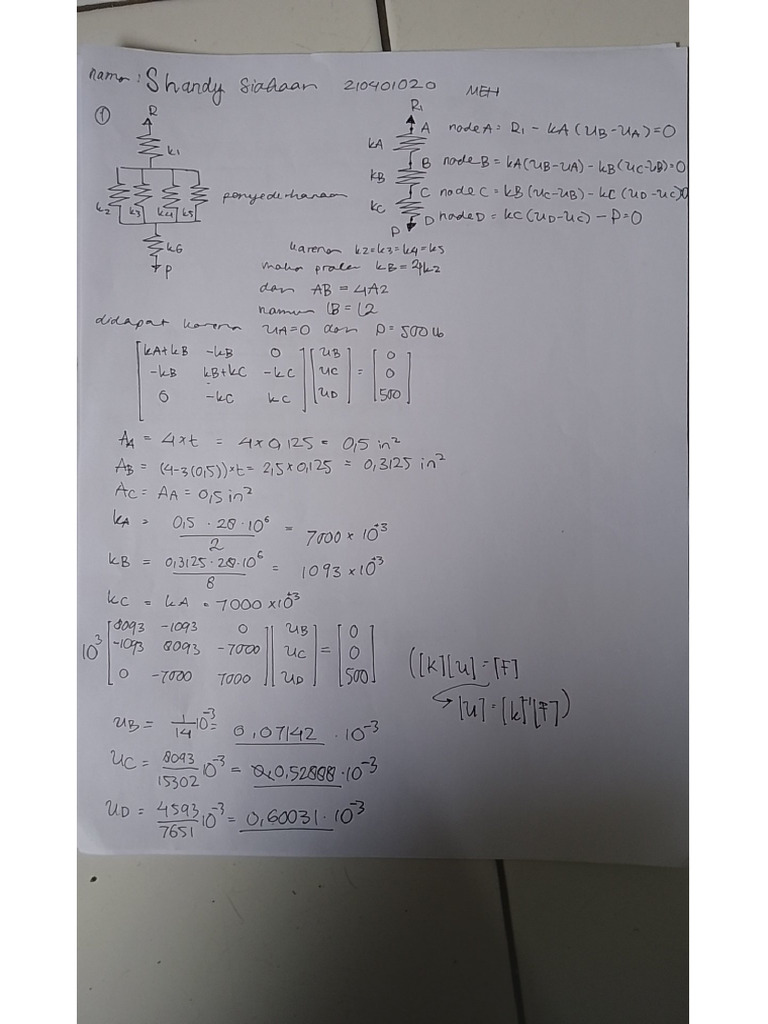 nama : Shandy Siahaan 210401020 MEH
①
R
k1
k2 k3 k4 k5
k6
P
penyederhanaan
R1
kA
kB
kC
P
A node A = R1 - kA (UB - UA) = 0
B node B = kA(UB-UA) - kB(UC-UB)=0
C node C = kB (UC-UB) - kC (UD-UC)0
D node D = kC (UD-UC) - P=0
karena k2=k3=k4=k5
maka kB = 4k2
dan AB = 4A2
namun LB = L2
didapat karena UA=0 dan P = 500 lb
[kA+kB -kB 0] [UB] = [0]
[-kB kB+kC -kC] [UC] [0]
[0 -kC kC] [UD] [500]
AA = 4 x t = 4 x 0,125 = 0,5 in²
AB = (4-3(0,5)) x t = 2,5 x 0,125 = 0,3125 in²
AC = AA = 0,5 in²
kA = 0,5 · 28 · 10⁶ / 2 = 7000 x 10⁺³
kB = 0,3125 · 28 · 10⁶ / 8 = 1093 x 10⁺³
kC = kA = 7000 x 10⁺³
10³ [8093 -1093 0] [UB] = [0]
[-1093 8093 -7000] [UC] [0]
[0 -7000 7000] [UD] [500]
([K][U] = [F]
↳ [U] = [k]⁻¹[F])
UB = 1/14 10⁻³ = 0,07142 · 10⁻³
UC = 8093/15302 10⁻³ = 0,52888 · 10⁻³
UD = 4593/7651 10⁻³ = 0,60031 · 10⁻³